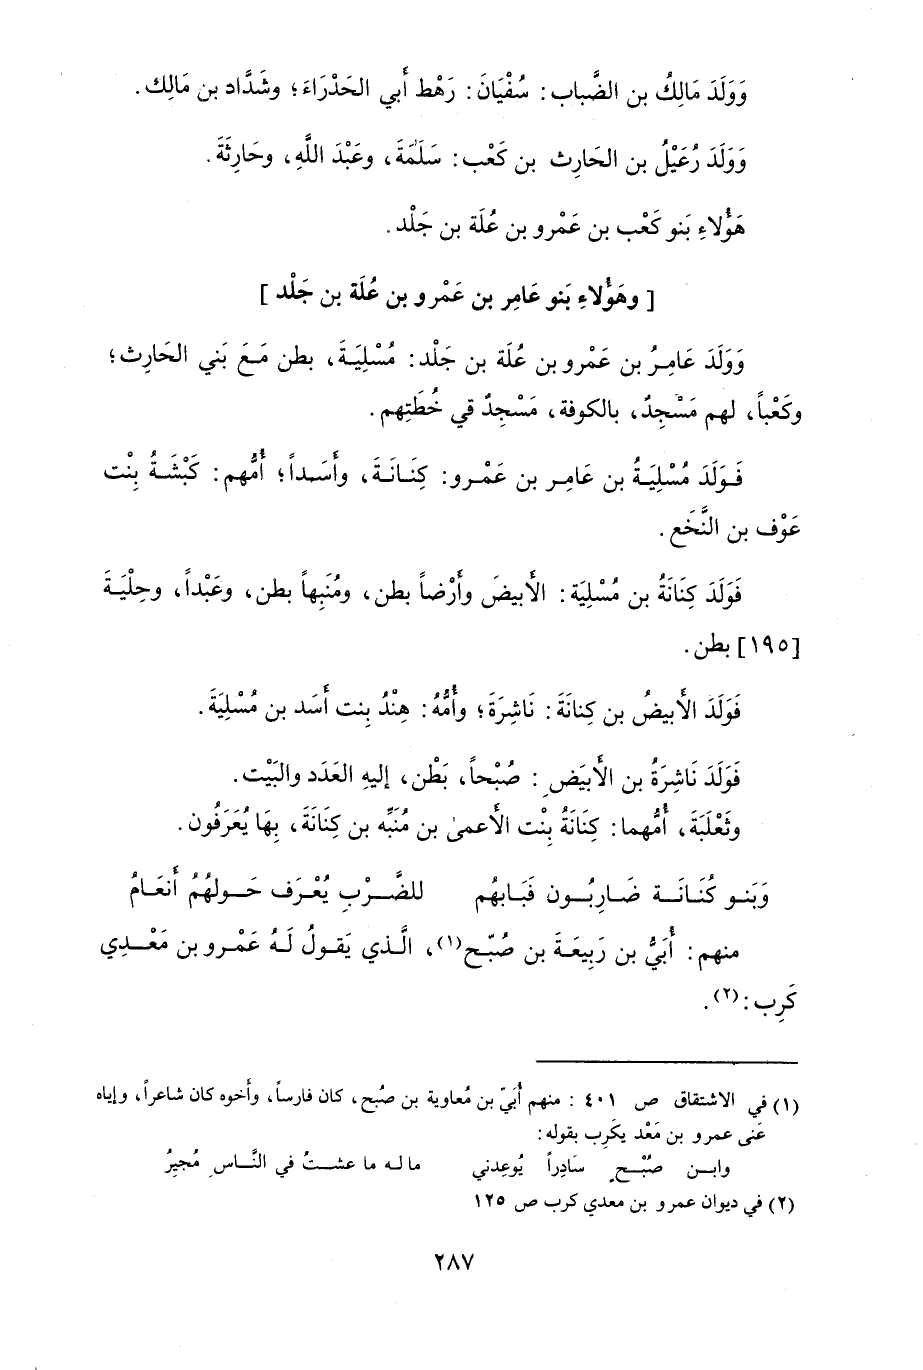 وَوَلَدَ مَالِكُ بن الضَّباب : سُفْيَانَ : رَهْط أَبي الحَذْرَاءَ ؛ وشَدَّاد بن مَالِك .
وَوَلَدَ رُعَيْلُ بن الحَارِث بن كَعْب : سَلَمَةَ ، وعَبْدَ اللَّهِ ، وحَارِثَةَ .
هَؤُلاءِ بَنو كَعْب بن عَمْرو بن عُلَة بن جَلْد .
[ وهَؤُلاءِ بَنو عَامِر بن عَمْرو بن عُلَة بن جَلْد ]
وَوَلَدَ عَامِرُ بن عَمْرو بن عُلَة بن جَلْد : مُسْلِيَةَ ، بطن مَعَ بَني الحَارِث ؛
وكَعْباً ، لهم مَسْجِدٌ ، بالكوفة ، مَسْجِدٌ قي خُطَتِهم .
فَوَلَدَ مُسْلِيَةُ بن عَامِر بن عَمْرو : كِنَانَةَ ، وأَسَداً ؛ أُمُّهم : كَبْشَةُ بِنْت
عَوْف بن النَّخَع .
فَوَلَدَ كِنَانَةُ بن مُسْلِيَة : الأَبيضَ وأَرْضاً بطن ، ومُنَبِهاً بطن ، وعَبْداً ، وحِلْيَةَ
[١٩٥] بطن .
فَوَلَدَ الأَبيضُ بن كِنانَةَ : نَاشِرَةَ ؛ وأُمُّهُ : هِنْدُ بِنت أَسَد بن مُسْلِيَةَ .
فَوَلَدَ نَاشِرَةُ بن الأَبيَضِ : صُبْحاً ، بَطْن ، إليهِ العَدَد والبَيْت .
وثَعْلَبَة ، أُمُّهما : كِنَانَةُ بِنْت الأَعمىٰ بن مُنَبِّه بن كِنَانَةَ ، بِهَا يُعَرَفُون .
وَبَنو كُنَانَة ضَارِبُون قَبَابهُم للضَّرْبِ يُعْرَف حَولهُمُ أَنعَامُ
منهم : أُبَيُّ بن رَبِيعَةَ بن صُبّح(١) ، الَّذي يَقولُ لَهُ عَمْرو بن مَعْدِي
كَرِب :(٢) .
(١) في الاشتقاق ص ٤٠١ : منهم أُبَيّ بن مُعاوية بن صُبح ، كان فارساً ، وأَخوه كان شاعراً ، وإياه
عَنى عمرو بن مَعْد يكَرِب بقوله :
وابن صُبْحٍ سَادِراً يُوعِدني ما له ما عشتُ في النَّاسِ مُجيرُ
(٢) في ديوان عمرو بن معدي كرب ص ١٢٥
٢٨٧